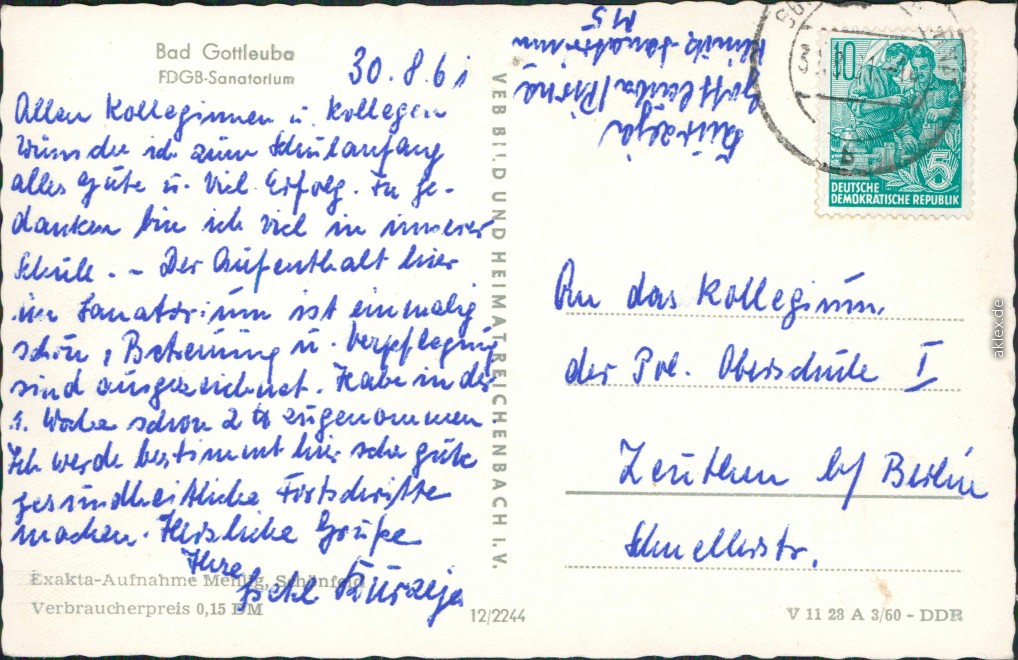 Bad Gottleuba
FDGB-Sanatorium
30.8.61
Allen Kolleginnen u. Kollegen
wünsche ich zum Schulanfang
alles Gute u. viel Erfolg. In Ge-
danken bin ich viel in unserer
Schule. - Der Aufenthalt hier
im Sanatorium ist einmalig
schön, Betreuung u. Verpflegung
sind ausgezeichnet. Habe in der
1. Woche schon 2 ℔ zugenommen.
Ich werde bestimmt hier sehr gute
gesundheitliche Fortschritte
machen. Herzliche Grüße
Ihre
Kurzeja
Exakta-Aufnahme Schönfeld
Verbraucherpreis 0,15 DM
12/2244
VEB BILD UND HEIMAT REICHENBACH I. V.
Kurzeja
Gottleuba/Pirna
Klinik-Sanatorium
M5
10
5
DEUTSCHE
DEMOKRATISCHE REPUBLIK
b
An das Kollegium
der Pol. Oberschule I
Zeuthen b/ Berlin
Schnellerstr.
V 11 28 A 3/60 - DDR
aklex.de